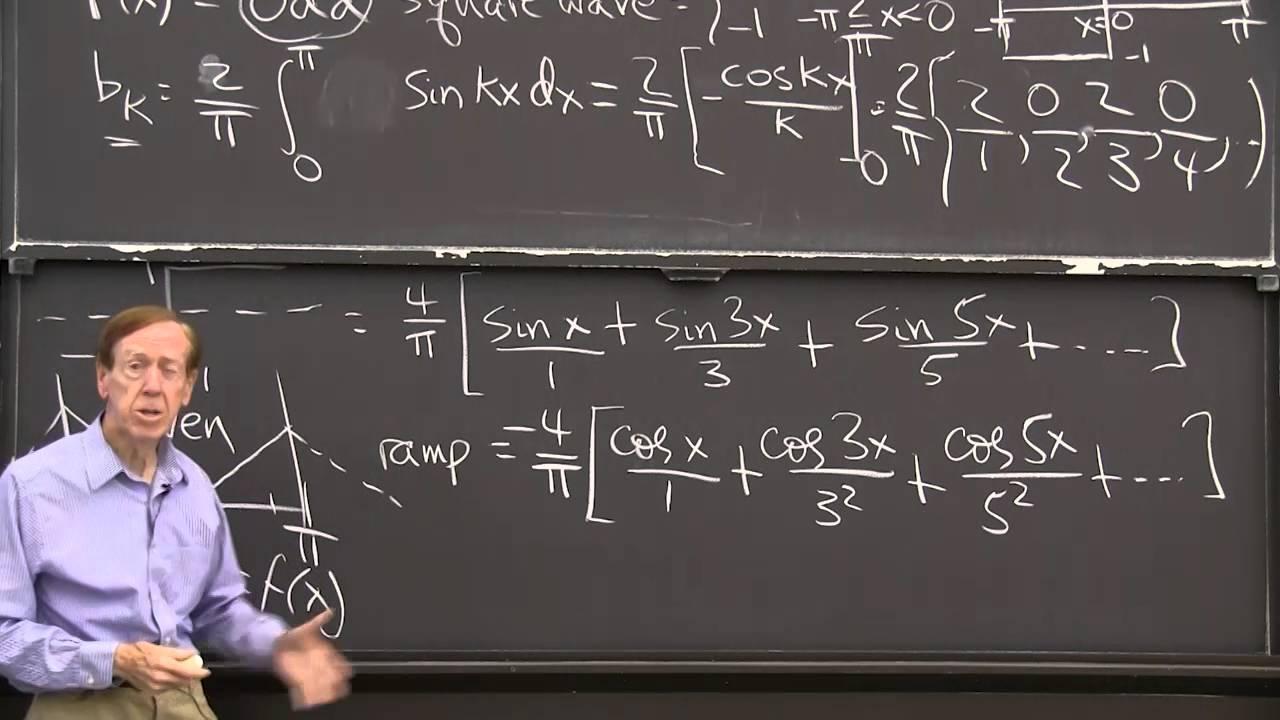 f(x) = Odd square wave = { -1 -π ≤ x < 0 -π x=0 -1 π
b_k = 2/π ∫_0^π sin kx dx = 2/π [ -cos kx / k ]_0^π = 2/π { 2/1, 0/2, 2/3, 0/4, ... }
= 4/π [ sin x / 1 + sin 3x / 3 + sin 5x / 5 + .... ]
ramp = -4/π [ cos x / 1 + cos 3x / 3² + cos 5x / 5² + .... ]
π
f(x)